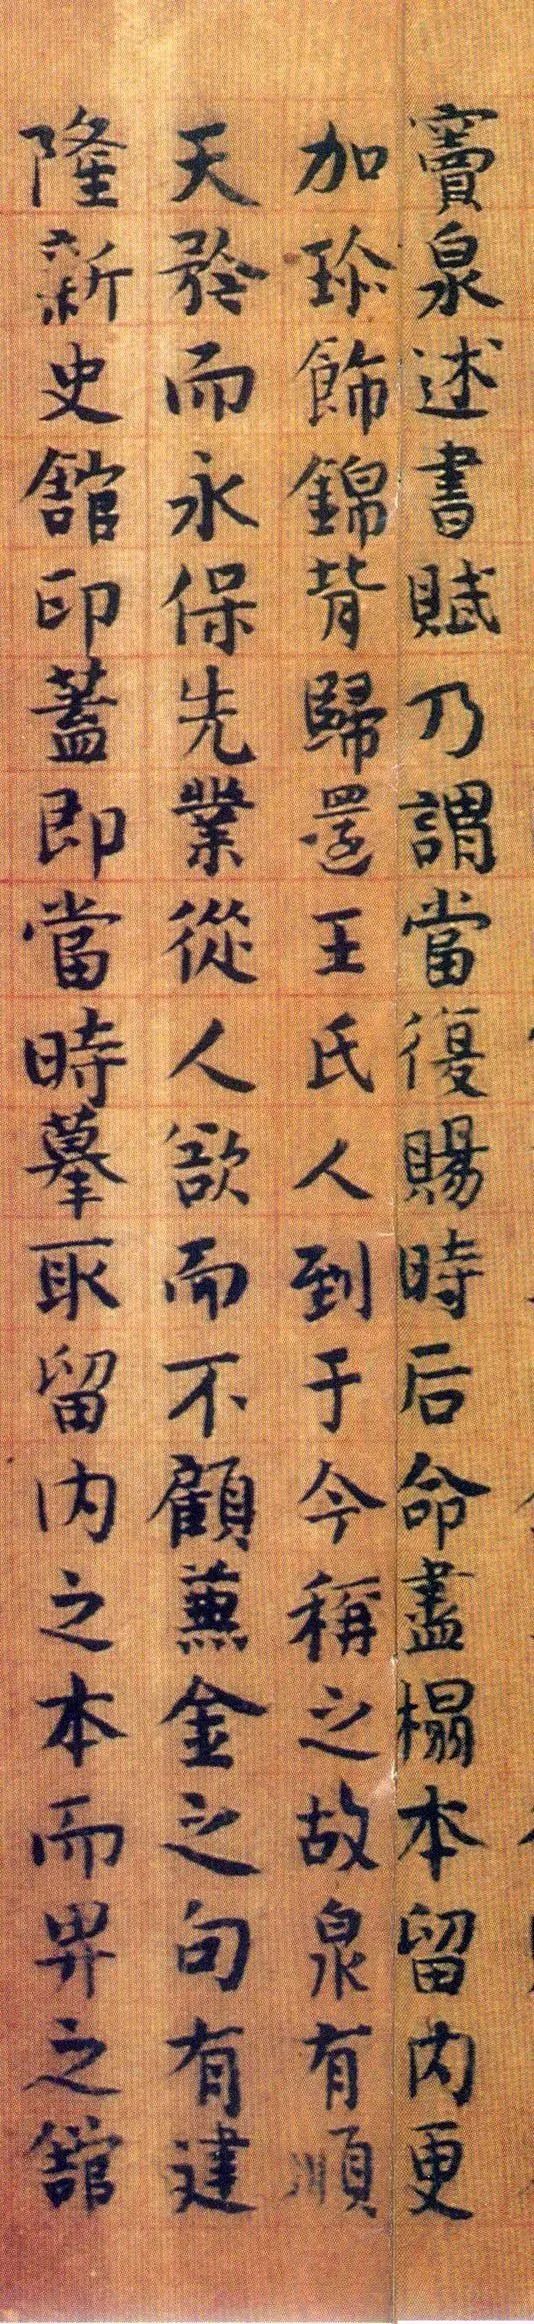 竇泉述書賦乃謂當復賜時后命盡榻本留内更
加珎飾錦背歸還王氏人到于今稱之故泉有順
天矜而永保先業從人欲而不顧蕪金之句有建
隆新史舘印蓋即當時摹取留内之本而畀之舘